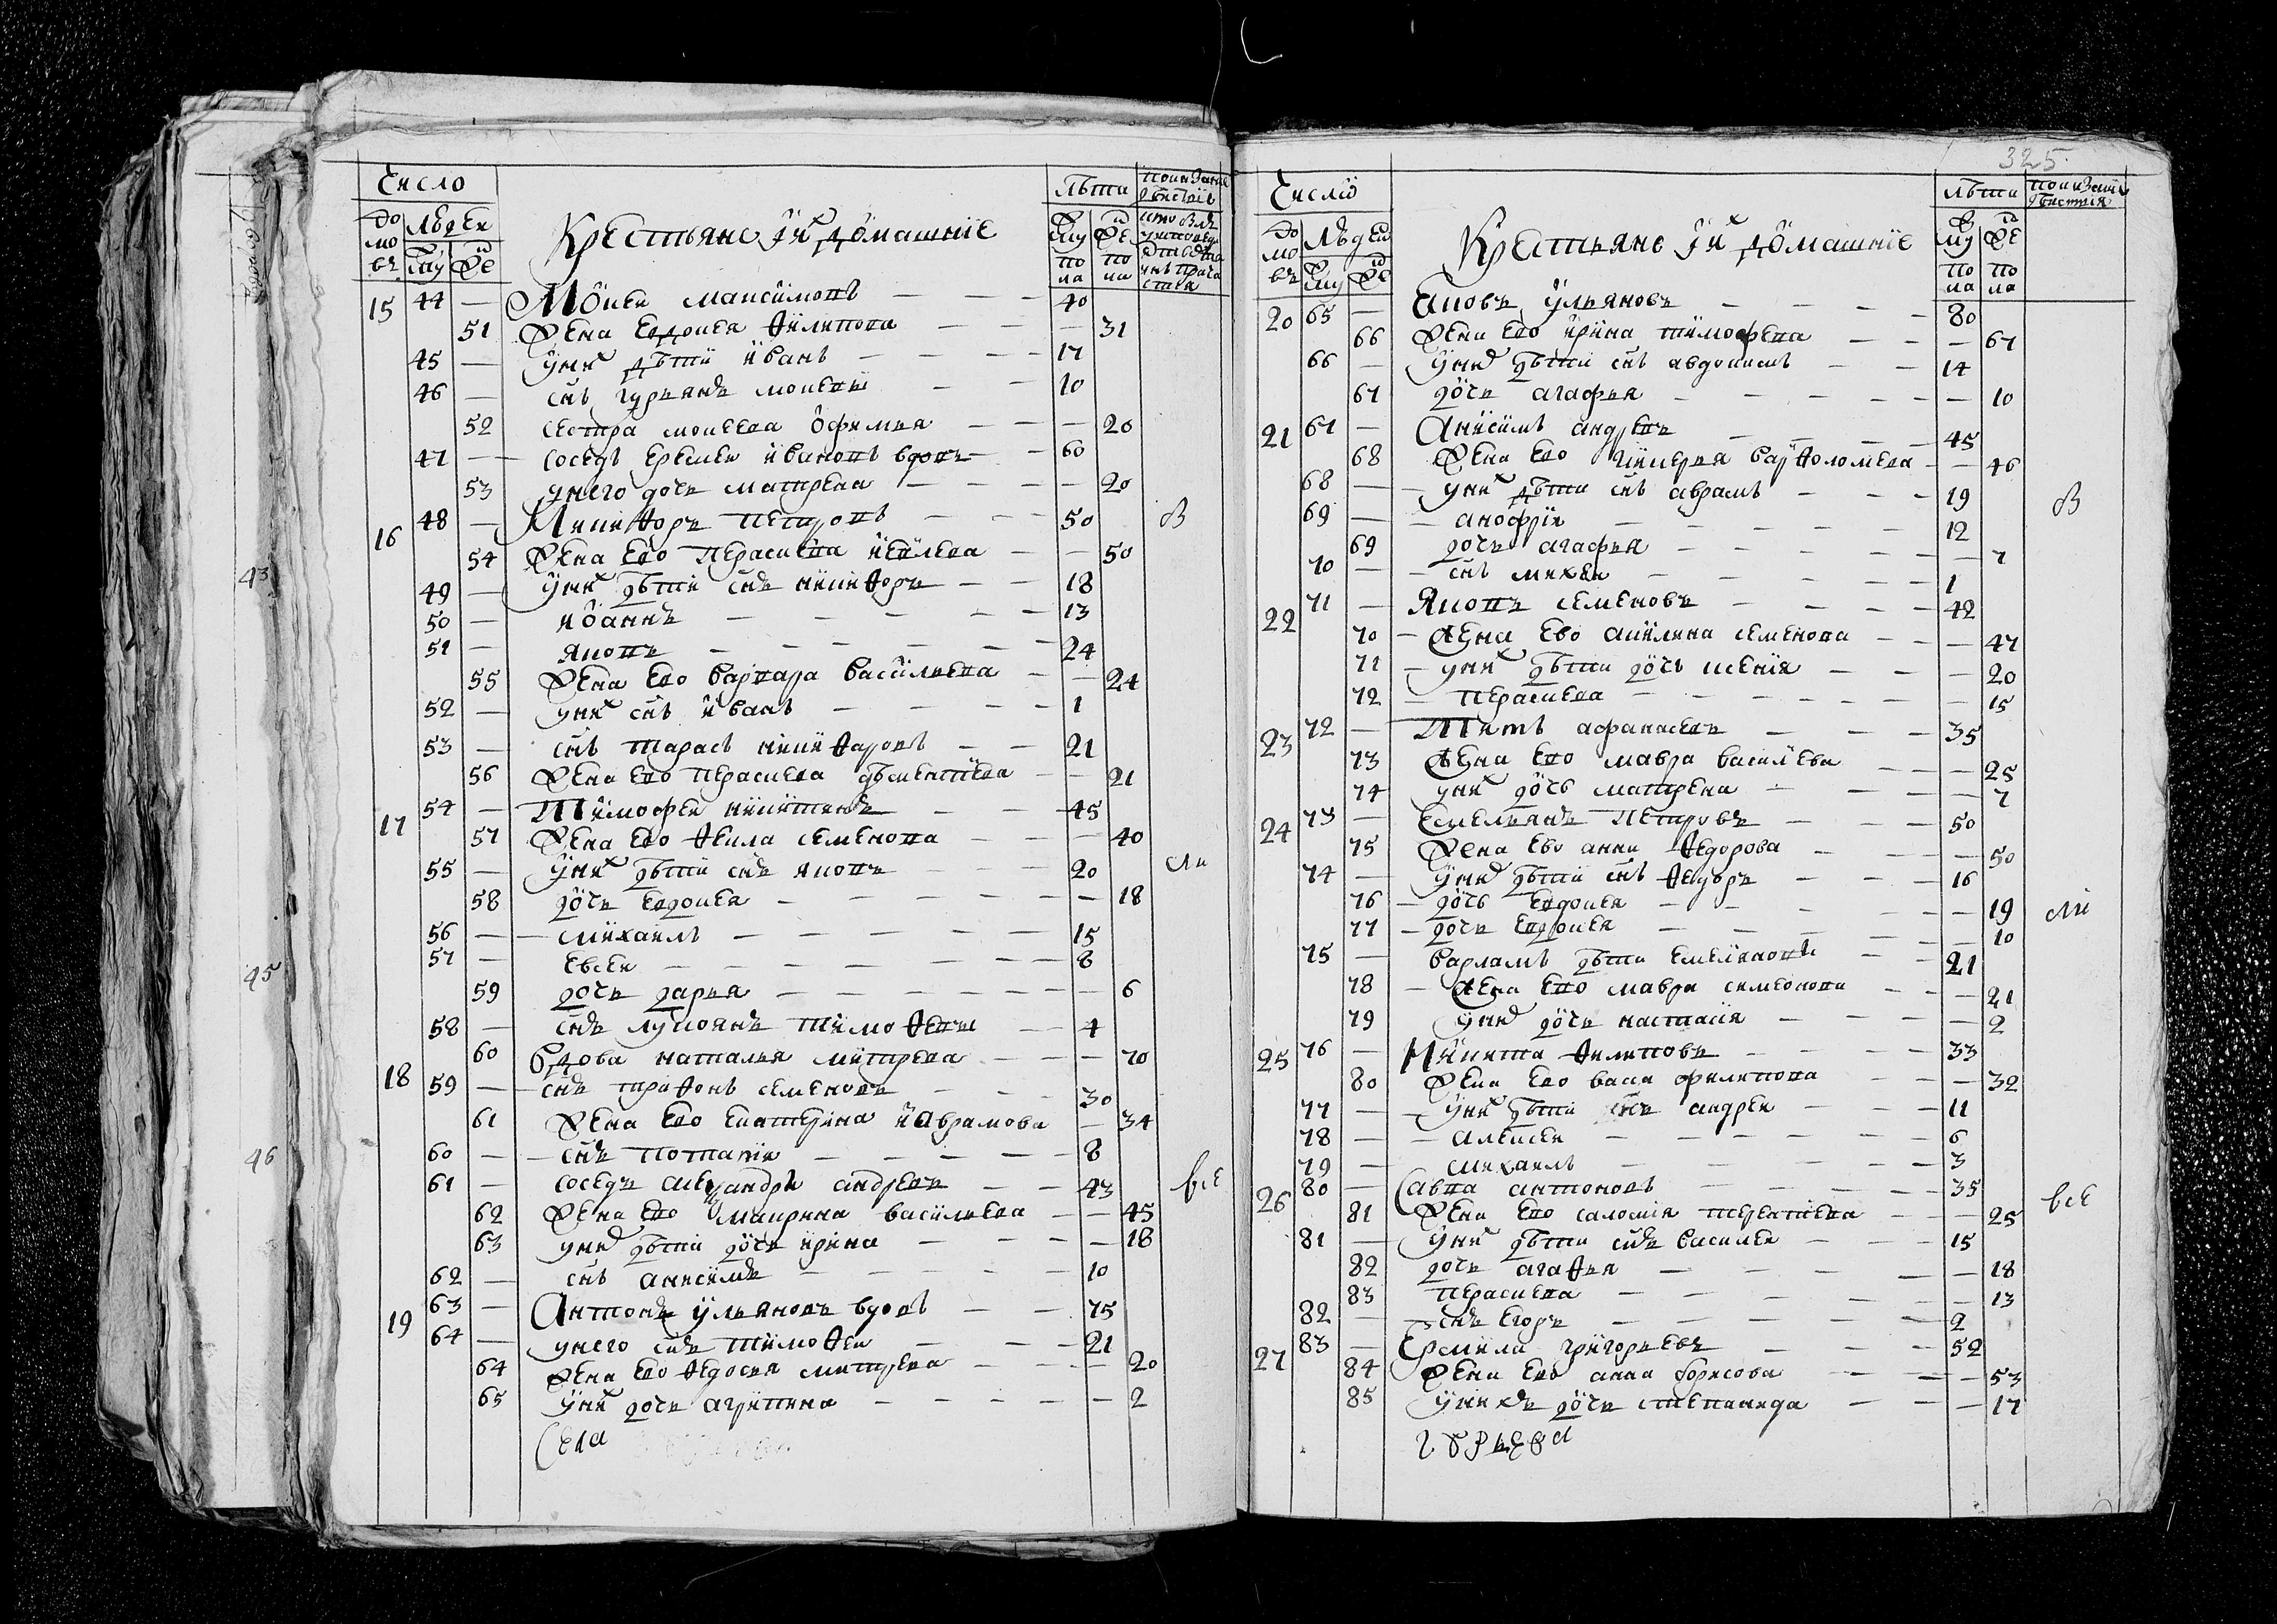 Число
Крестьяне и их домашние
лѣта
показание дѣйствия
домовъ
людей
муж
же
муж
же
что в ле
пола
пола
15 44 — Мокей максимовъ — 40
51 Жена евдокея филипова — 31
45 — у них дѣти иванъ — 17
46 — снъ гурьянъ мокеевъ — 10
52 сестра мокеева офимья — 20
47 — соседъ еремеи ивановъ вдовъ — 60
53 у него дочь матрена — 20
16 48 — Никифоръ петровъ — 50 в
54 Жена ево перасковa иевлева — 50
49 — у них дѣти снъ никифоръ — 18
50 — иоаннъ — 13
51 — яковъ — 24
55 Жена ево варвара васильева — 24
52 — у них снъ иванъ — 1
53 — снъ тарасъ никифаровъ — 21
56 Жена ево перасковa дѣментиева — 21
17 54 — Тимофеи никитинъ — 45
57 Жена ево фекла семенова — 40
55 — у них дѣти снъ яковъ — 20 сли
58 дочь евдокея — 18
56 — михаилъ — 15
57 — евсеи — 8
59 дочь дарья — 6
58 — снъ лукоянъ тимофѣевъ — 4
18 60 Вдова наталья митрева — 70
59 — снъ трифонъ семеновъ — 30
61 Жена ево екатерина иаврамова — 34
60 — снъ потапий — 8
61 — соседъ александръ андревъ — 43 все
62 Жена ево маирина васильева — 45
63 у них дѣти дочь ирина — 18
62 — снъ анисимъ — 10
19 63 — Антонъ ульяновъ вдовъ — 75
64 — у него снъ тимофеи — 21
64 Жена ево федосья митрева — 20
65 у них дочь агрипина — 2
села
325
Число
Крестьяне и их домашние
лѣта
показание дѣйствия
домовъ
людей
муж
же
муж
же
пола
пола
20 65 — Иаковъ ульяновъ — 80
66 Жена ево ирина тимофева — 67
66 — у них дѣти снъ авдокимъ — 14
67 дочь агафья — 10
21 67 — Анисимъ андревъ — 45
68 Жена ево гликерия варфоломева — 46
68 — у них дѣти снъ аврамъ — 19 в
69 — анофрий — 12
69 дочь агафья — 7
70 — снъ михеи — 1
22 71 — Яковъ семеновъ — 42
70 — Жена ево акилина семенова — 47
71 — у них дѣти дочь ксения — 20
72 — перасковa — 15
23 72 — Титъ афанасевъ — 35
73 Жена ево мавра василева — 25
74 у них дочь матрена — 7
24 73 — Емельянъ петровъ — 50
75 Жена ево анна федорова — 50
74 — у них дѣти снъ федоръ — 16
76 — дочь евдокея — 19 сли
77 — дочь евдокея — 10
75 — варламъ дѣти емеляновъ — 21
78 — Жена ево мавра симеонова — 21
79 у них дочь настасия — 2
25 76 — Никита филиповъ — 33
80 Жена ево васа филипова — 32
77 — у них дѣти снъ андреи — 11
78 — алексеи — 6
79 — михаилъ — 3
26 80 — Савва антоновъ — 35
81 Жена ево саломия терентиева — 25 все
81 — у них дѣти снъ василеи — 15
82 дочь агафья — 18
83 перасковa — 13
82 — снъ егоръ — 2
27 83 — Ермила григорьевъ — 52
84 Жена ево анна борисова — 53
85 у них дочь степанида — 17
43
45
46